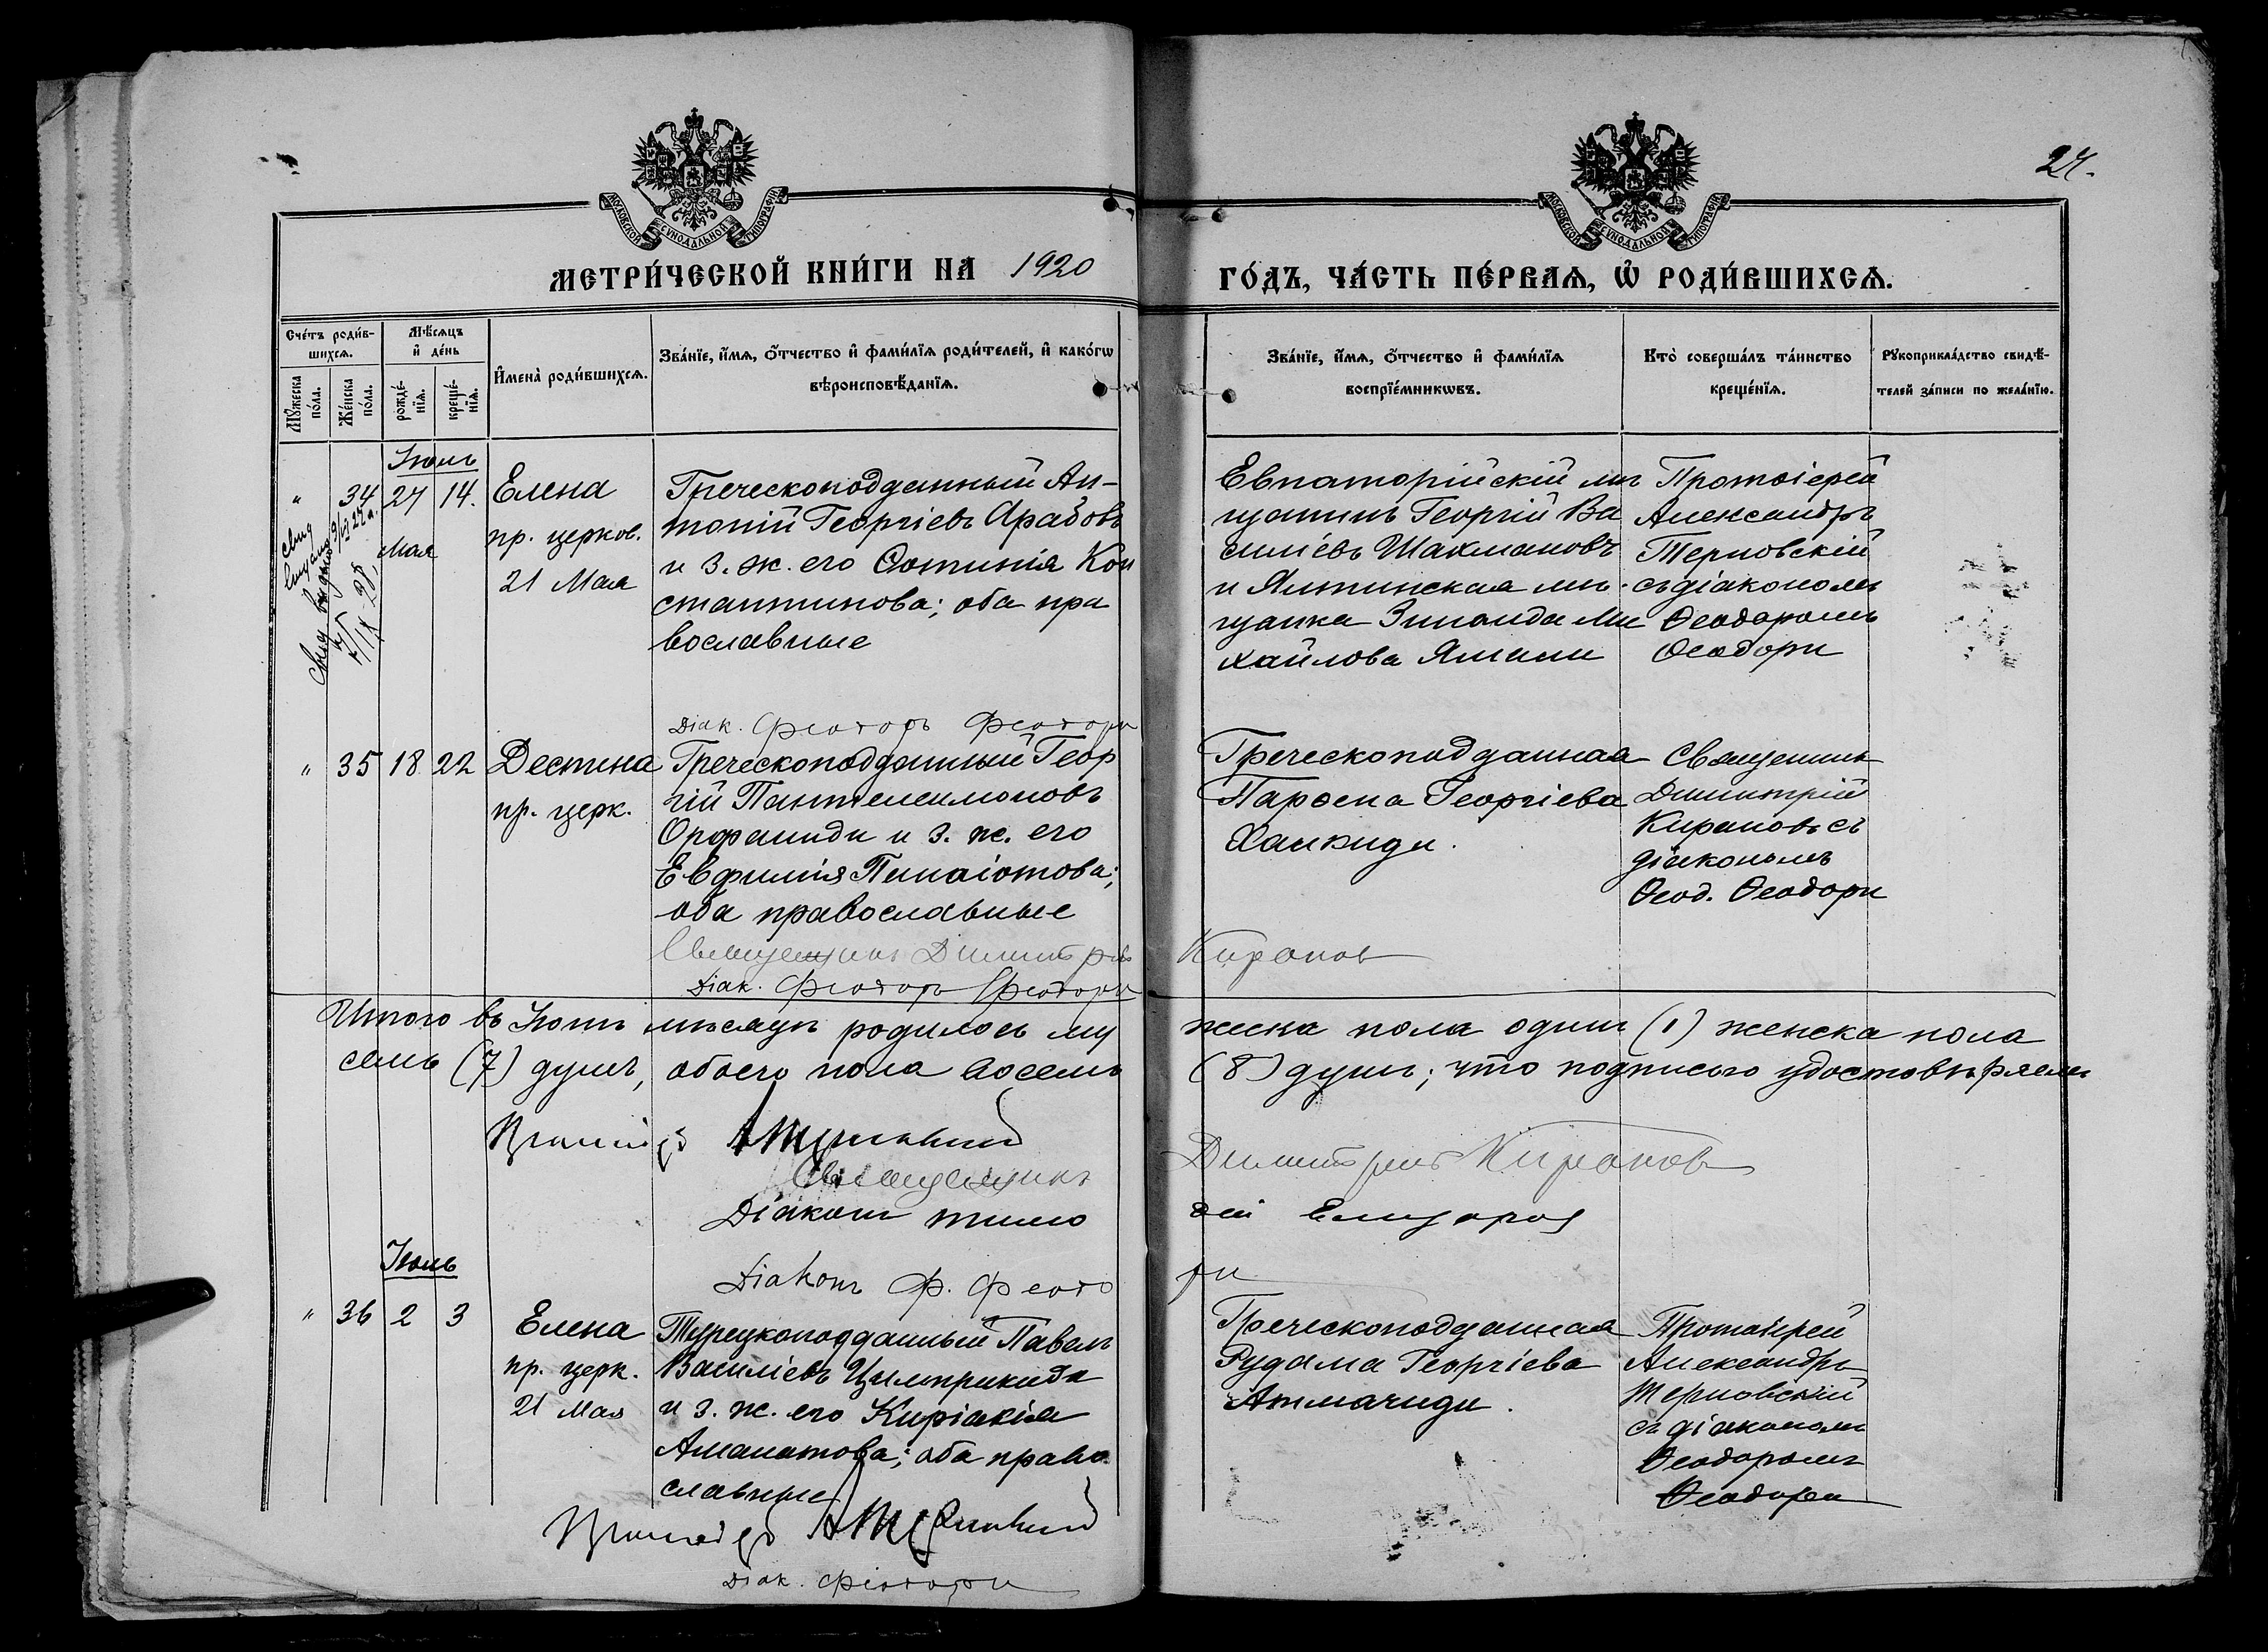 24.
МОСКОВСКОЙ СУНОДАЛЬНОЙ ТИПОГРАФІИ
МОСКОВСКОЙ СУНОДАЛЬНОЙ ТИПОГРАФІИ
МЕТРИ́ЧЕСКОЙ КНИ́ГИ НА 1920 ГО́ДЪ, ЧА́СТЬ ПЕ́РВАѦ, Ѡ҆ РОДИ́ВШИХСѦ.
Сче́тъ роди́в-
шихсѧ.
Мꙋ́жеска по́ла.
Же́нска по́ла.
Мѣ́сѧцъ
и҆ де́нь
рожде́-нїѧ.
креще́-нїѧ.
И҆мена̀ роди́вшихсѧ.
Зва́нїе, и҆́мѧ, ѻ҆́тчество и҆ фами́лїѧ роди́телей, и҆ како́гѡ
вѣроисповѣ́данїѧ.
Зва́нїе, и҆́мѧ, ѻ҆́тчество и҆ фами́лїѧ
воспрїе́мникѡвъ.
Кто̀ соверша́лъ та́инство
креще́нїѧ.
Рꙋкоприкла́дство свидѣ́-
телей за́писи по жела́нїю.
Іюнь
" 34 27 14.
Мая
Елена
пр. церков.
21 Мая
Греческоподданный Ан-
тоній Георгіевъ Арабовъ
и з. ж. его Фотинія Кон
стантинова; оба пра
вославные
Евпаторійскій мѣ
щанинъ Георгій Ва
силіевъ Шахмановъ
и Ялтинская мѣ-
щанка Зинаида Ми
хайлова Ялини
Протоіерей
Александръ
Терновскій
съ діакономъ
Ѳеодоромъ
Ѳеодори
Діак. Феоторъ Феотори
" 35 18 22
Дестина
пр. церк.
Греческоподданный Геор
гій Пантелеимоновъ
Орфаниди и з. ж. его
Евфимія Панаіотова;
оба православные
Греческоподданная
Парѳена Георгіева
Халкиди.
Священникъ
Димитрій
Кирановъ съ
діакономъ
Ѳеод. Ѳеодори
Священникъ Димитрій Киранов
Діак. Феоторъ Феотори
Итого въ Іюнѣ мѣсяцѣ родилось му жеска пола одинъ (1) женска пола
семь (7) душъ, обоего пола восемь (8) душъ; что подписью удостовѣряемъ
Протоіерей А Терновскій
Священникъ Димитрій Киранов
Діаконъ Тимо ѳей
Діаконъ Ф. Феото ри
Іюль
" 36 2 3
Елена
пр. церк.
21 Мая
Турецкоподданный Павелъ
Василіевъ
и з. ж. его Киріакія
Аманатова; оба право
славные
Греческоподданная
Рудама Георгіева
Атмачиди.
Протоіерей
Александръ
Терновскій
съ діакономъ
Ѳеодоромъ
Ѳеодори
Протоіерей А Терновскій
Діак. Феотори